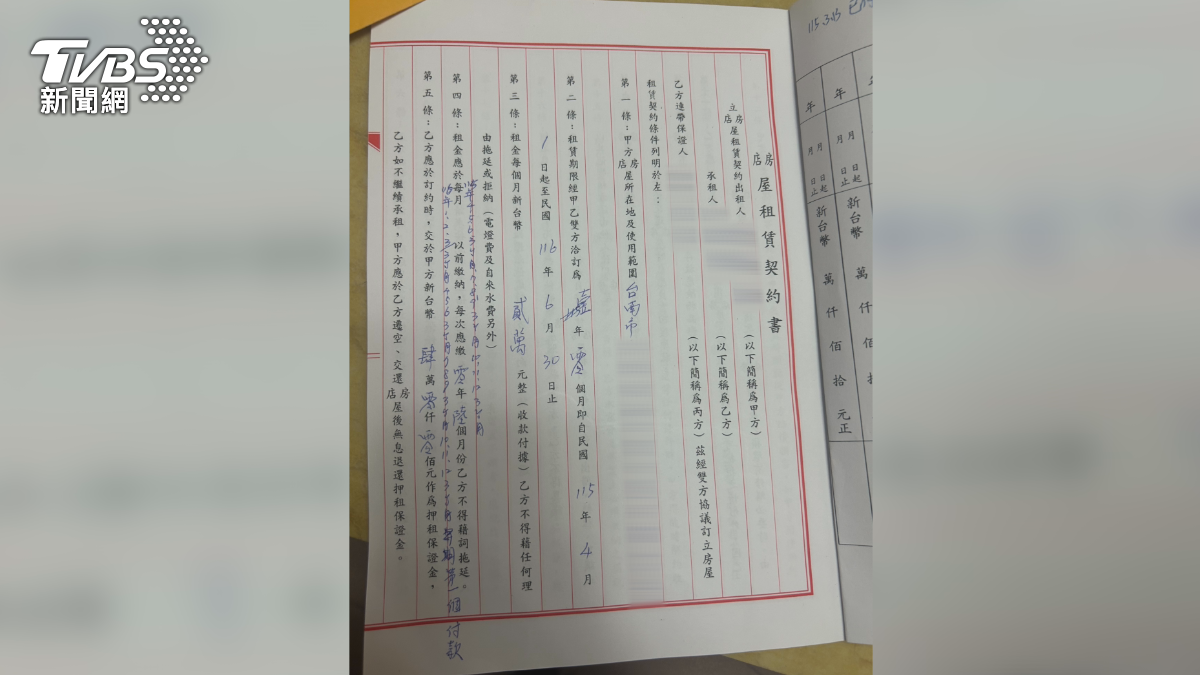 TVBS
新聞網
115.3.13
年 月 日起
年 月 日止
新台幣 萬 仟 佰 拾 元正
新台幣 萬 仟 佰
房店屋租賃契約書
立房店屋租賃契約出租人 (以下簡稱為甲方)
承租人 (以下簡稱為乙方)
乙方連帶保證人 (以下簡稱為丙方)茲經雙方協議訂立房屋
租賃契約條件列明於左:
第一條:甲方房店屋所在地及使用範圍台南市
第二條:租賃期限經甲乙雙方洽訂為壹年零個月即自民國115年4月
1日起至民國116年6月30日止
第三條:租金每個月新台幣貳萬元整(收款付據)乙方不得藉任何理
由拖延或拒納(電燈費及自來水費另外)
第四條:租金應於每月 以前繳納,每次應繳零年陸個月份乙方不得藉詞拖延。
第五條:乙方應於訂約時,交於甲方新台幣肆萬零仟零佰元作為押租保證金,
乙方如不繼續承租,甲方應於乙方遷空、交還房店屋後無息退還押租保證金。